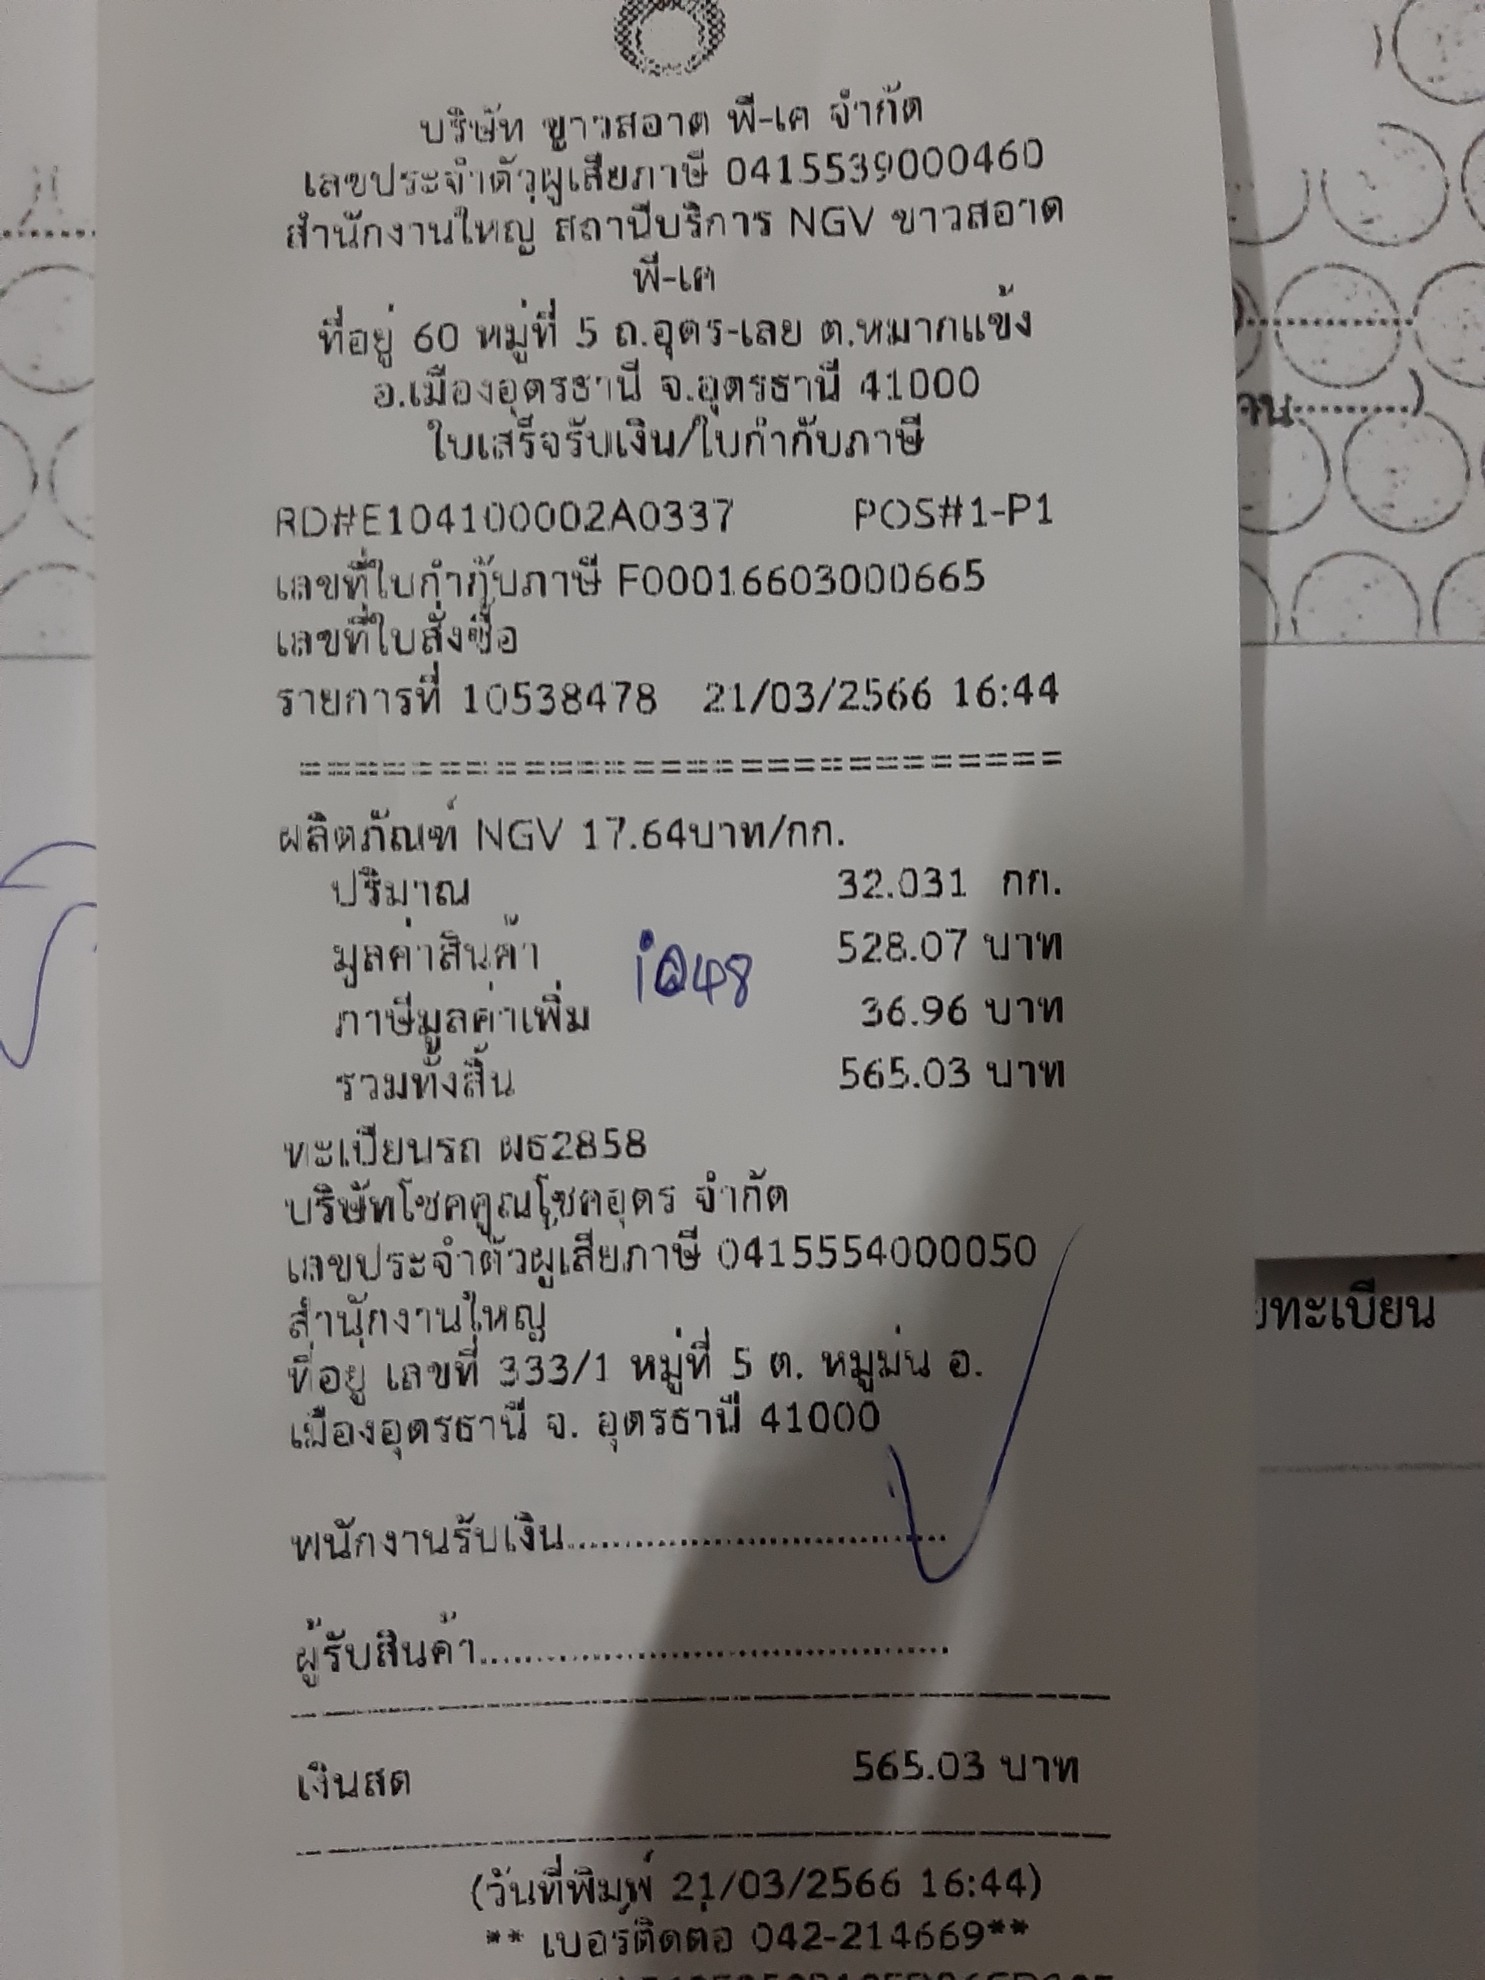 บริษัท ขาวสอาด พี-เค จำกัด
เลขประจำตัวผู้เสียภาษี 0415539000460
สำนักงานใหญ่ สถานีบริการ NGV ขาวสอาด
พี-เค
ที่อยู่ 60 หมู่ที่ 5 ถ.อุดร-เลย ต.หมากแข้ง
อ.เมืองอุดรธานี จ.อุดรธานี 41000
ใบเสร็จรับเงิน/ใบกำกับภาษี
RD#E104100002A0337 POS#1-P1
เลขที่ใบกำกับภาษี F00016603000665
เลขที่ใบสั่งซื้อ
รายการที่ 10538478 21/03/2566 16:44
============================
ผลิตภัณฑ์ NGV 17.64บาท/กก.
ปริมาณ 32.031 กก.
มูลค่าสินค้า 528.07 บาท
ภาษีมูลค่าเพิ่ม 36.96 บาท
รวมทั้งสิ้น 565.03 บาท
ทะเบียนรถ ผธ2858
บริษัทโชคคูณโชคอุดร จำกัด
เลขประจำตัวผู้เสียภาษี 0415554000050
สำนักงานใหญ่
ที่อยู่ เลขที่ 333/1 หมู่ที่ 5 ต. หมูม่น อ.
เมืองอุดรธานี จ. อุดรธานี 41000
พนักงานรับเงิน........................................
ผู้รับสินค้า........................................
เงินสด 565.03 บาท
(วันที่พิมพ์ 21/03/2566 16:44)
** เบอร์ติดต่อ 042-214669**
ทะเบียน